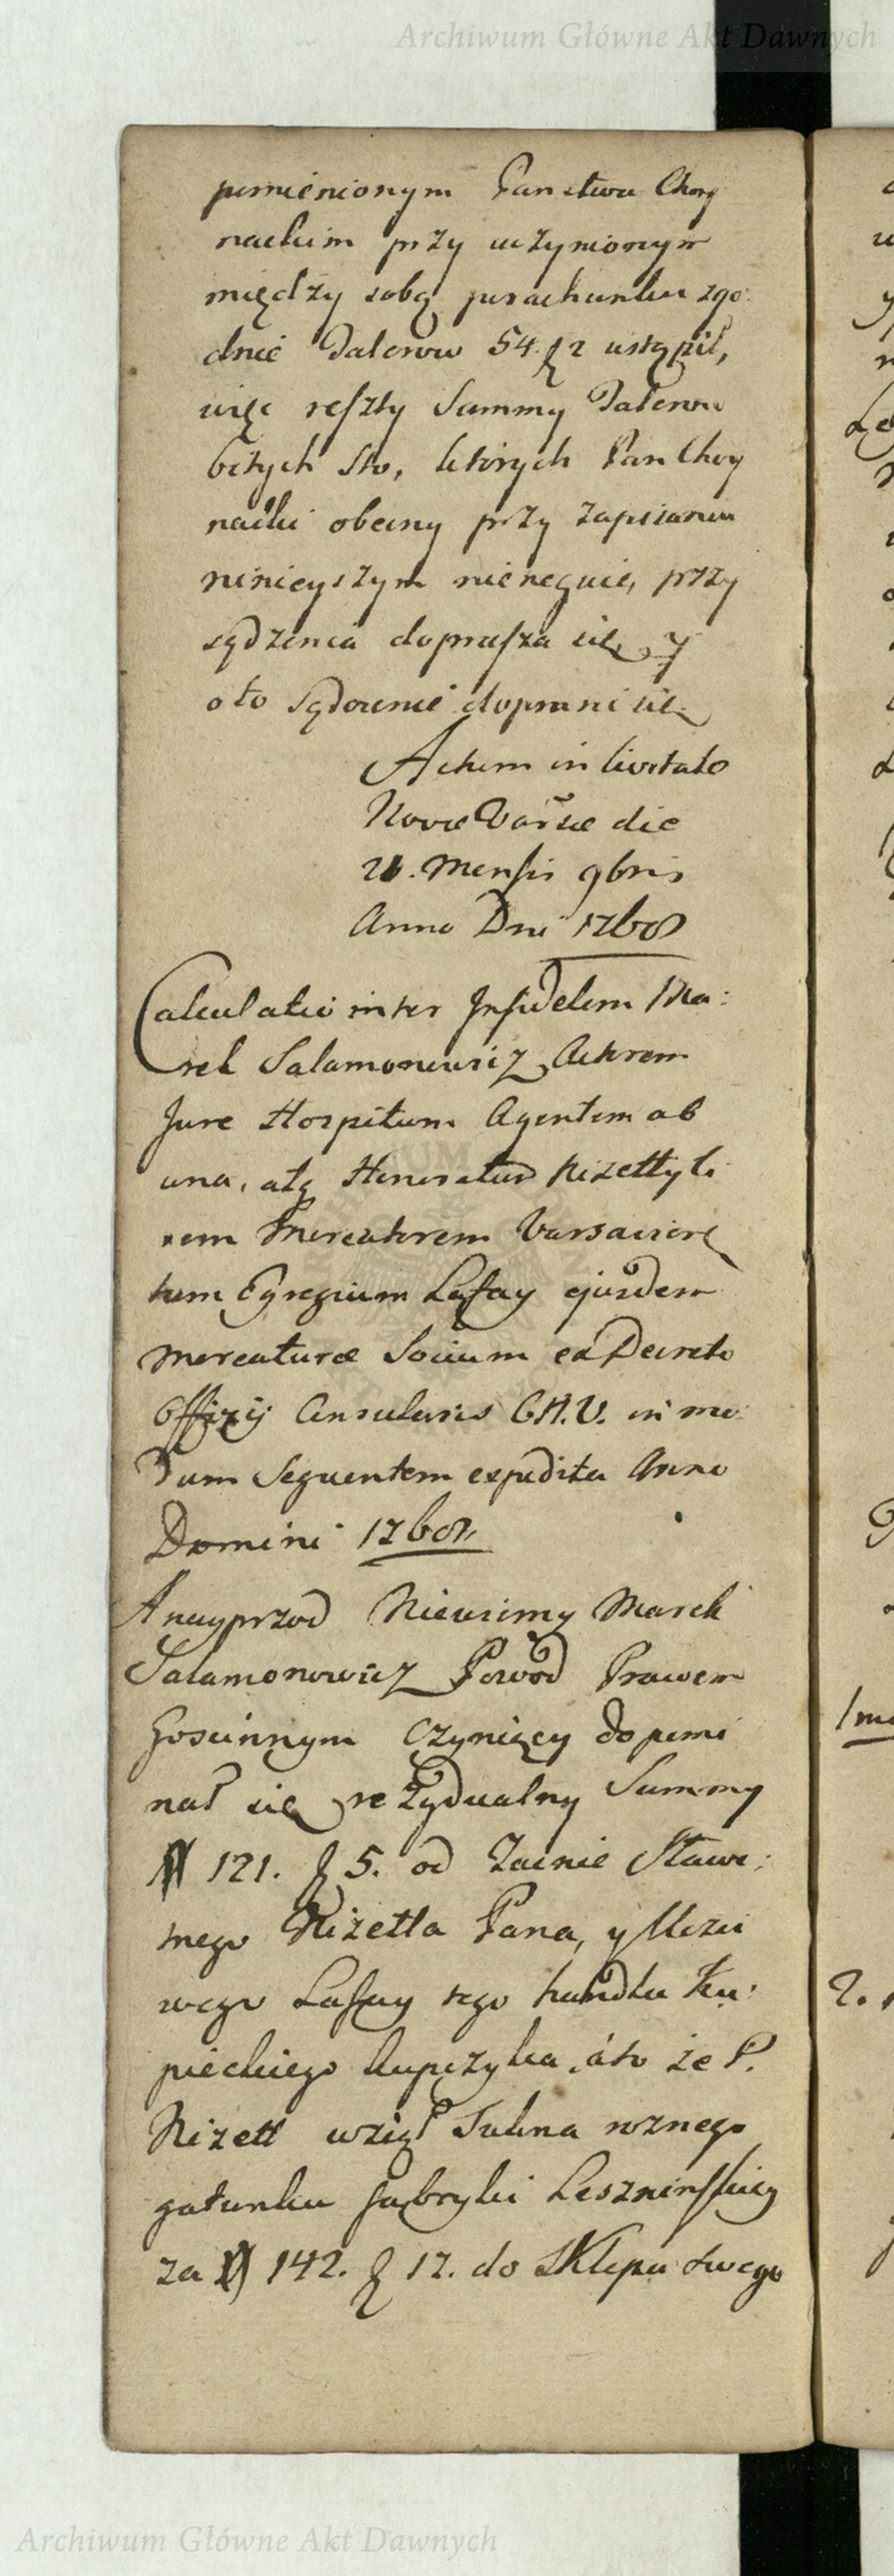 Archiwum Główne Akt Dawnych
pomienionym Panstwu Choy
nackim przy uczynionym
między sobą porachunku zgo:
dnie Talerow 54. 2 ustąpił,
więc reszty Summy Talerow
bitych sto, ktorych Pan Choy
nacki obecny przy zapisaniu
ninieyszym nieneguie, przy
sądzenia doprasza się y
oto sądzenie dopomni się
Actum in Civitate
Novae Varsae die
21. Mensis 9bris
Anno Dni 1768
Calculatio inter Infidelem Ma:
rek Salamonowicz Actorem
Jure Hospitum Agentem ab
una, atq Honoratum Nizetty
Mercatorem Varsavien
tum Egregium Lafay ejusdem
Mercaturae Socium ex Decreto
Officij Consularis C.N.V. in mo:
dum Sequentem expedita Anno
Domini 1768
A nayprzod Niewierny Marek
Salamonowicz Powod Prawem
Goscinnym Czyniący dopomi
nał się rezydualny Summy
121. 5. od Zacnie Sławe:
tnego Nizetta Pana, y Uczci
wego Lafay tego handlu Ku:
pieckiego kupczyka, áto że P.
Nizett wziął Sukna roznego
gatunku fabryki Leszninskiey
za 142. 17. do Sklepu swego
Archiwum Główne Akt Dawnych